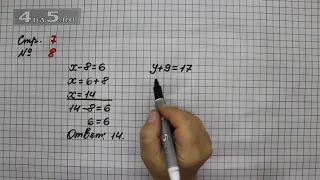 4на5.ru
Стр. 7
№ 8
x-8=6
x=6+8
x=14
14-8=6
6=6
Ответ: 14.
y+9=17